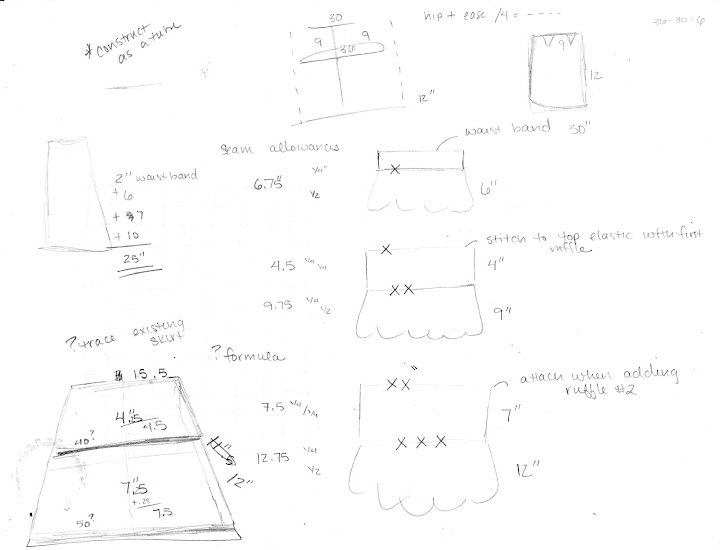 *construct
as a tube
30
9 9
36
12"
hip + ease /4 = - - - -
36-30-6
9
12
seam allowances
waist band 30"
2" waistband
+ 6
+ 7
+ 10
25"
6.75" 1/4"
1/2
6"
stitch to top elastic with first
ruffle
4.5 1/4 1/4
4"
9.75 1/4
1/2
9"
? trace existing
skirt
? formula
15.5
4.25
4.5
40?
12"
7.25
+.25
7.5
50?
attach when adding
ruffle #2
7.5 1/4/1/4
7"
12.75 1/4
1/2
12"